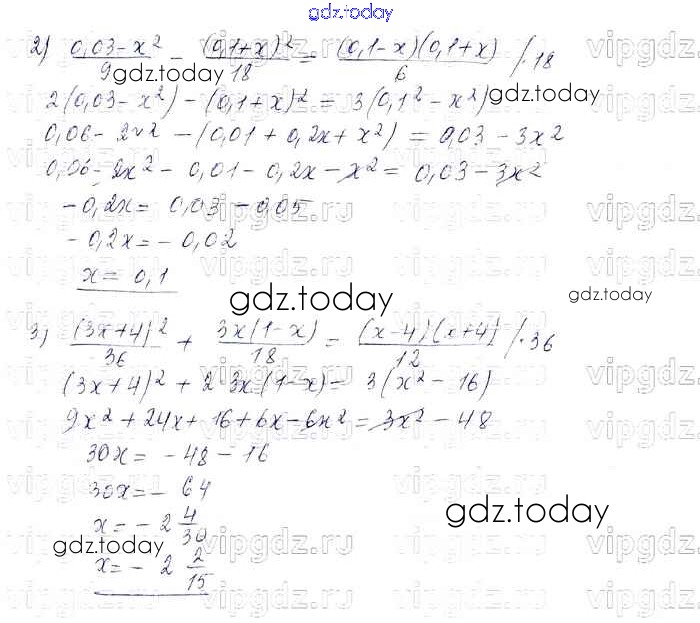 gdz.today
2) (0,03-x²)/9 - (0,1+x)²/18 = (0,1-x)(0,1+x)/6 /·18
gdz.today
2(0,03-x²)-(0,1+x)²=3(0,1²-x²)
gdz.today
0,06-2x²-(0,01+0,2x+x²)=0,03-3x²
0,06-2x²-0,01-0,2x-x²=0,03-3x²
-0,2x=0,03-0,05
-0,2x=-0,02
x=0,1
gdz.today
gdz.today
3) (3x+4)²/36 + 3x(1-x)/18 = (x-4)(x+4)/12 /·36
(3x+4)²+2·3x(1-x)=3(x²-16)
9x²+24x+16+6x-6x²=3x²-48
30x=-48-16
30x=-64
gdz.today
x=-2 4/30
gdz.today
x=-2 2/15
vipgdz.ru